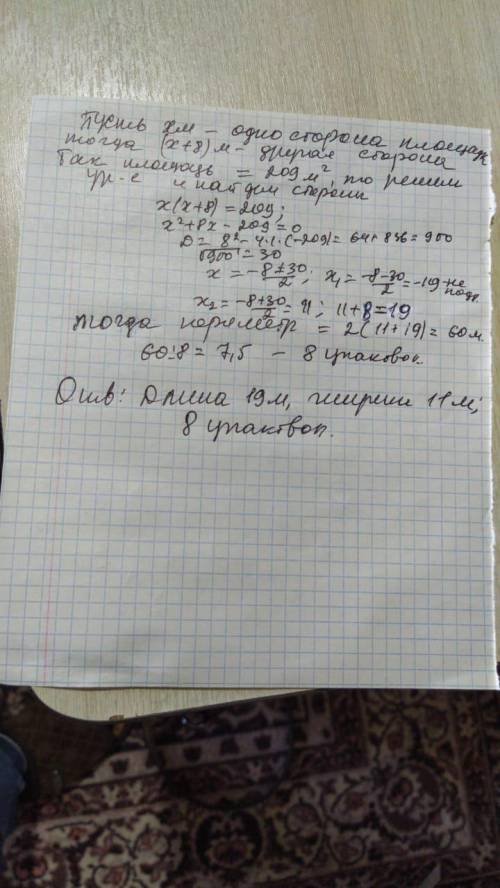 Пусть xм – одно сторона площадк
тогда (x+8)м - другая сторона
Так площадь = 209 м², то решим
ур-е и найдем стороны
x(x+8) = 209;
x²+8x - 209 = 0
D = 8² - 4·1·(-209) = 64 + 836 = 900
√900 = 30
x = -8±30/2; x₁ = -8-30/2 = -19 -не подх.
x₂ = -8+30/2 = 11; 11+8=19
тогда периметр = 2(11+19) = 60м.
60:8 = 7,5 – 8 упаковок
Отв: Длина 19м, ширина 11м;
8 упаковок.